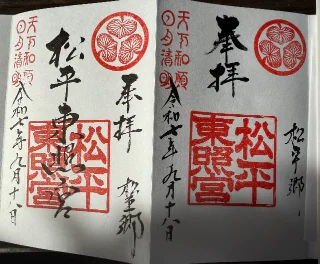 奉拝
松平郷
松平
東照宮
天下和順
日月清明
令和七年九月十八日
奉拝
松平郷
松平東照宮
松平
東照宮
天下和順
日月清明
令和七年九月十八日